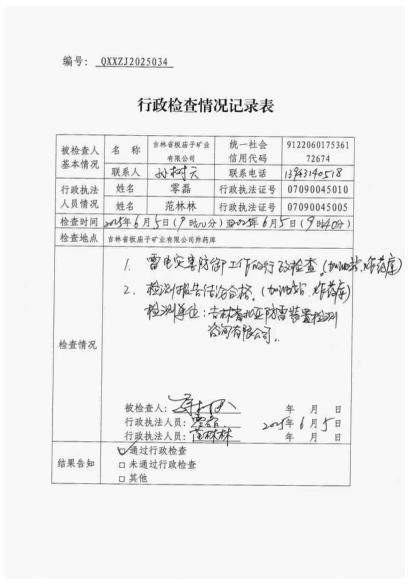 编号: QXXZJ2025034
行政检查情况记录表
被检查人基本情况 名 称 吉林省板庙子矿业有限公司 统一社会信用代码 912206017536172674
联系人 孙树天 联系电话 13943140518
行政执法人员情况 姓名 零磊 行政执法证号 07090045010
姓名 范林林 行政执法证号 07090045005
检查时间 2025年6月5日(9时00分)至2025年6月5日(9时40分)
检查地点 吉林省板庙子矿业有限公司炸药库
检查情况
1. 雷电灾害防御工作的行政检查。(加油站、炸药库)
2. 检测报告结论合格。(加油站、炸药库)
检测单位: 吉林省 防雷装置检测
咨询有限公司。
被检查人: 年 月 日
行政执法人员: 零磊 2025年6月5日
行政执法人员: 范林林
结果告知
☑通过行政检查
□未通过行政检查
□其他